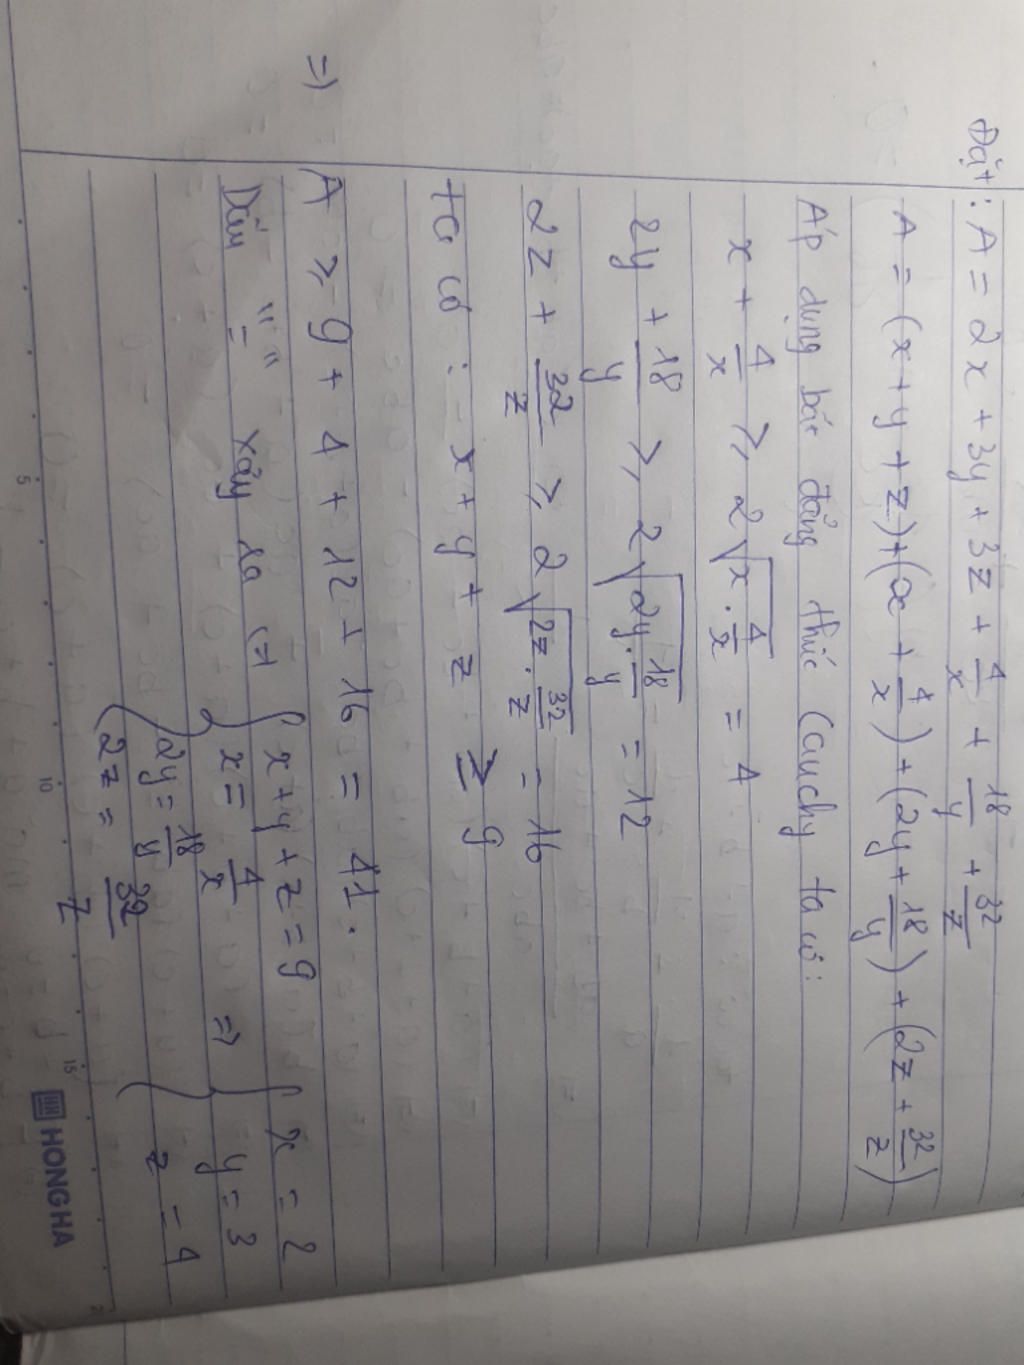 Đặt: A = 2x + 3y + 3z + 4/x + 18/y + 32/z
A = (x + y + z) + (x + 4/x) + (2y + 18/y) + (2z + 32/z)
Áp dụng bất đẳng thức Cauchy ta có:
x + 4/x ≥ 2√(x . 4/x) = 4
2y + 18/y ≥ 2√(2y . 18/y) = 12
2z + 32/z ≥ 2√(2z . 32/z) = 16
ta có : x + y + z ≥ 9
=) A ≥ 9 + 4 + 12 + 16 = 41.
Dấu "=" xảy ra (=) { x + y + z = 9 { x = 2
x = 4/x =) y = 3
2y = 18/y z = 4
2z = 32/z
5 10 15 2
HONG HA